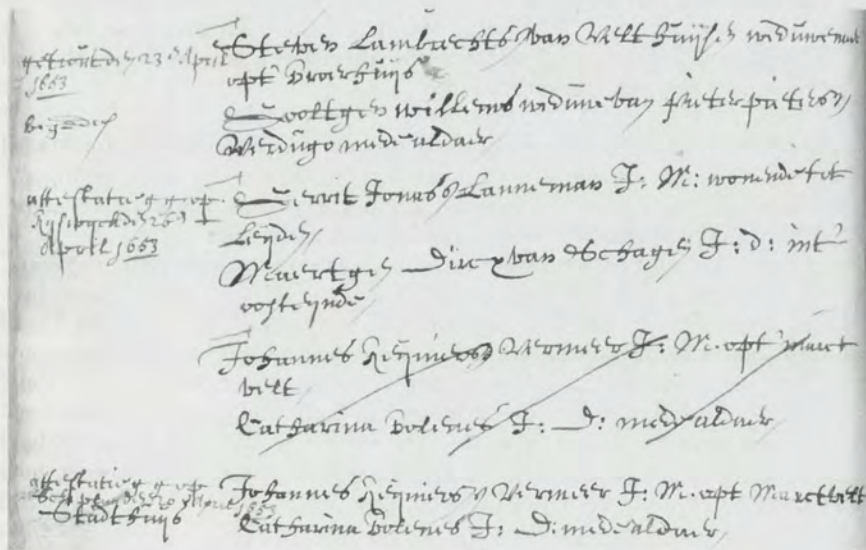 getrout den 23en April
1653
Steven Lambrechts van Velthuijsen weduwenaer
opt Broerhuijs
Gooltgen willems weduwe van pieter pieterss
Verdugo mede aldaer
attestatie gegeven op
Rijswijck den 26en
April 1653
Gerrit Jonass Lanneman J: M: wonende tot
Leijden
Maertgen Dircx van Schagen J: d: int
oosteijnde
Johannes Reijniersz Vermeer J: M. opt marct
velt
Catharina Bolenes J: D: mede aldaer
attestatie gegeven op
Schipluij den 20 April 1653
Stadthuijs
Johannes Reijniersz Vermeer J: M. opt Marctvelt
Catharina Bolenes J: D: mede aldaer